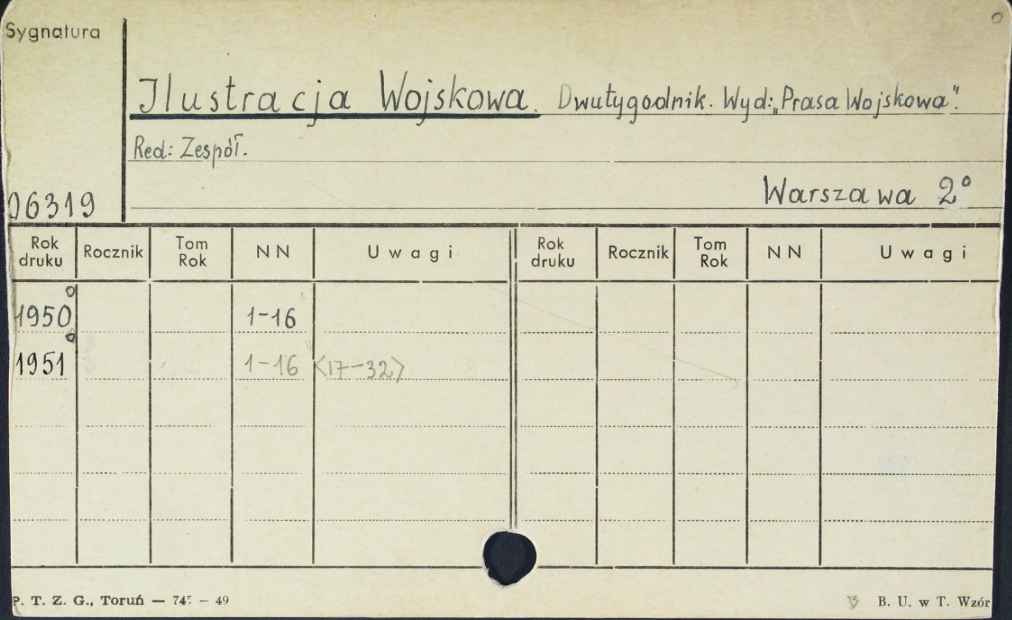 Sygnatura
Ilustracja Wojskowa. Dwutygodnik. Wyd: „Prasa Wojskowa".
Red: Zespół.
06319
Warszawa 2°
Rok druku Rocznik Tom Rok NN Uwagi Rok druku Rocznik Tom Rok NN Uwagi
1950 1-16
1951 1-16 <17-32>
P. T. Z. G., Toruń — 49
B. U. w T. Wzór